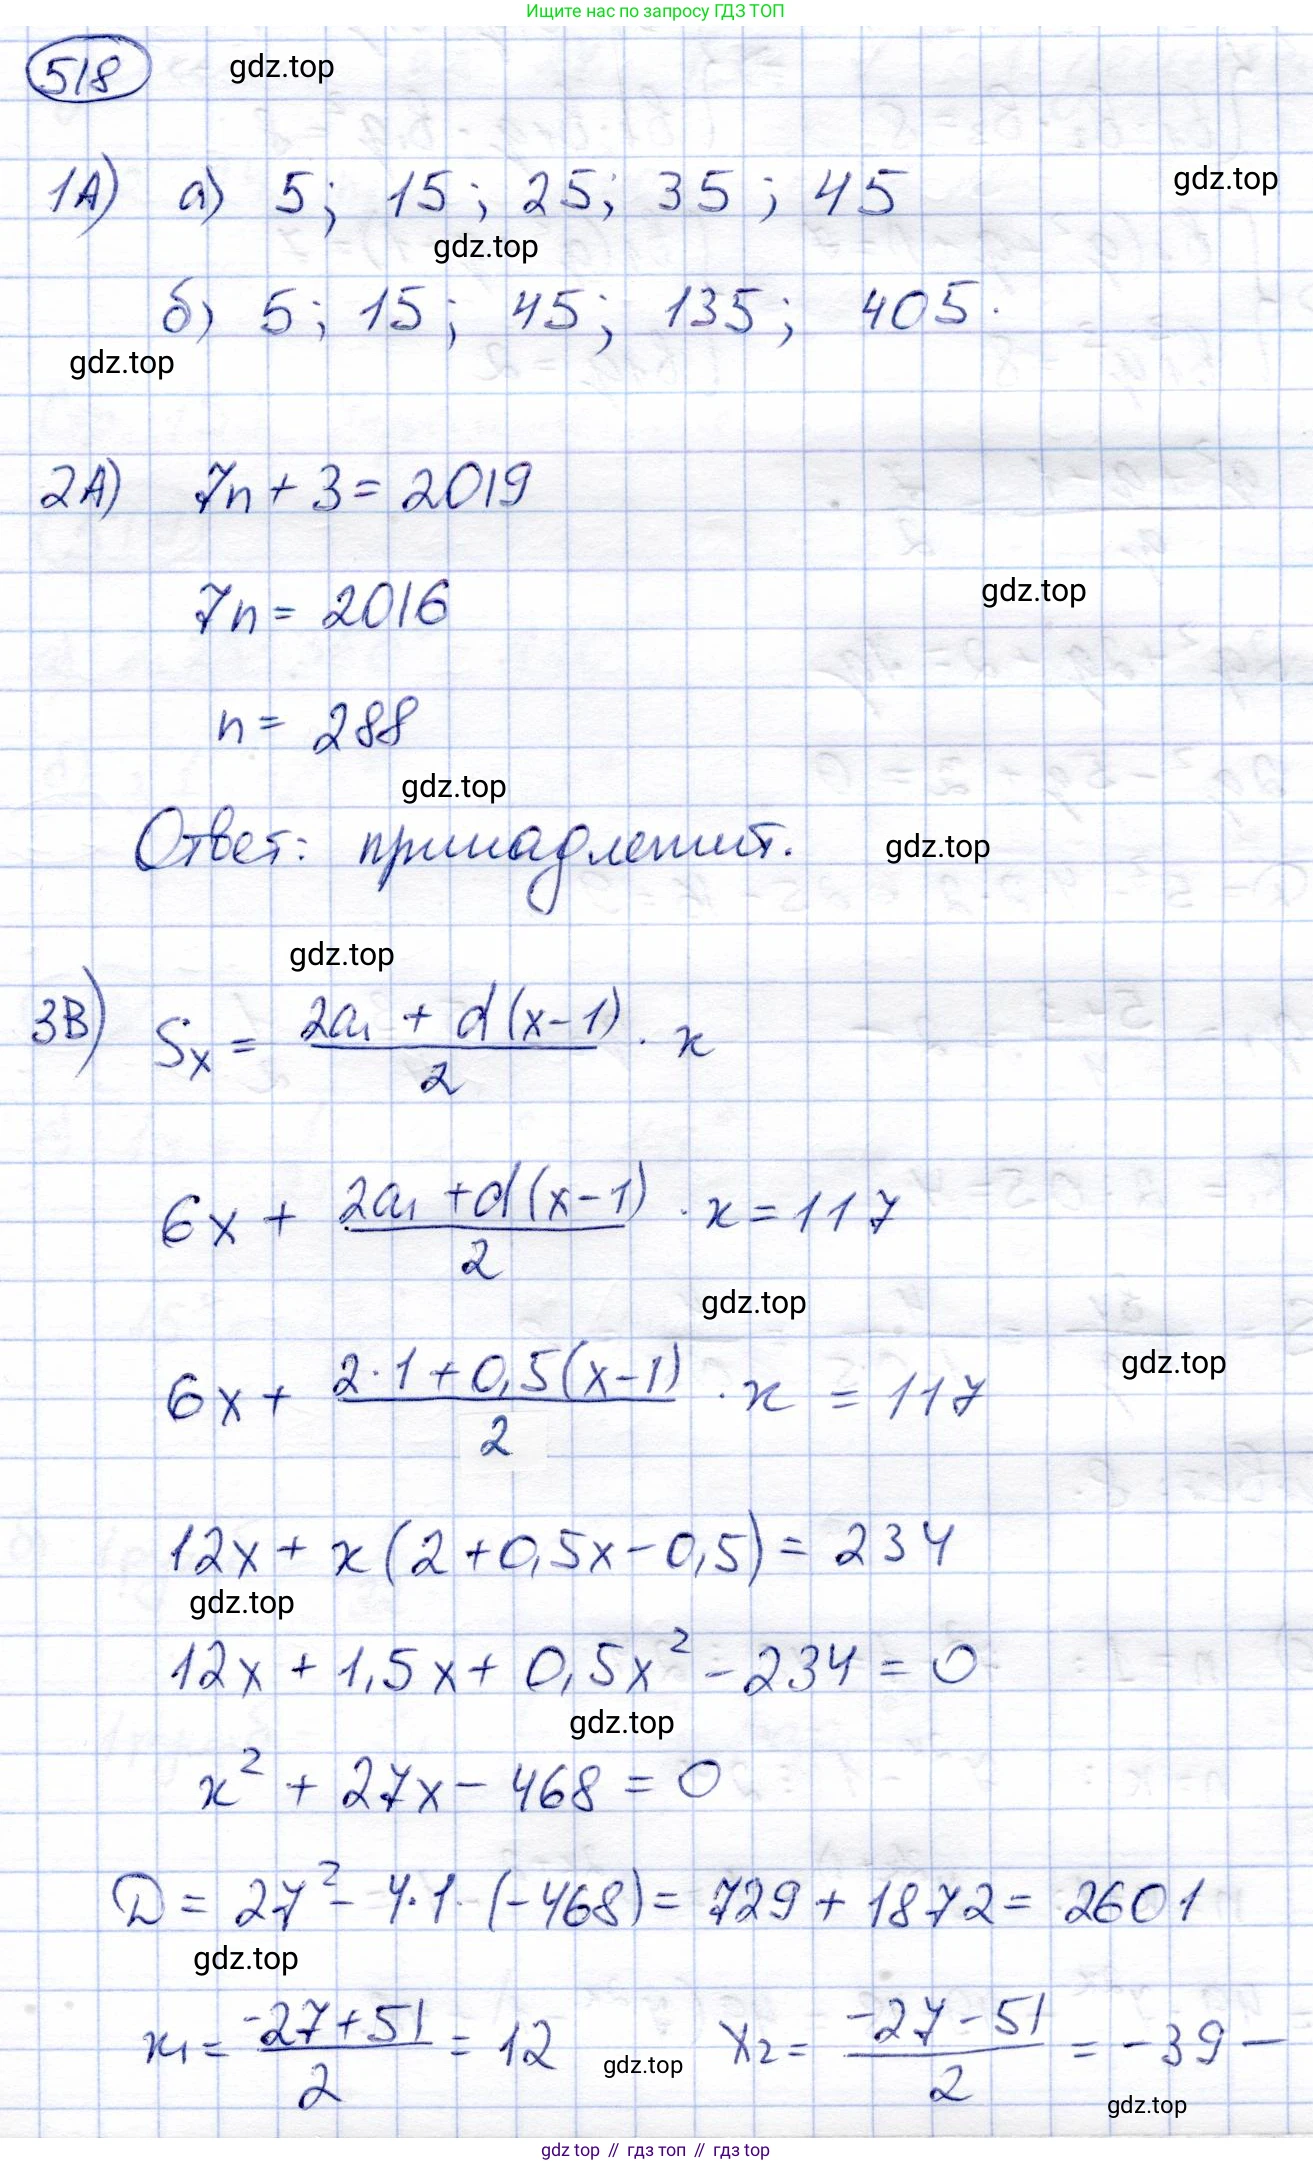 Ищите нас по запросу ГДЗ ТОП
518 gdz.top
1А) а) 5; 15; 25; 35; 45 gdz.top
gdz.top
б) 5; 15; 45; 135; 405.
gdz.top
2А) 7n + 3 = 2019
7n = 2016 gdz.top
n = 288
gdz.top
Ответ: принадлежит. gdz.top
gdz.top
3В) Sₓ = (2a₁ + d(x-1))/2 · x
6x + (2a₁ + d(x-1))/2 · x = 117
gdz.top
6x + (2·1 + 0,5(x-1))/2 · x = 117 gdz.top
12x + x(2 + 0,5x - 0,5) = 234
gdz.top
12x + 1,5x + 0,5x² - 234 = 0
gdz.top
x² + 27x - 468 = 0
D = 27² - 4·1·(-468) = 729 + 1872 = 2601
gdz.top
x₁ = (-27+51)/2 = 12 gdz.top x₂ = (-27-51)/2 = -39 -
gdz.top
gdz top // гдз топ // gdz top